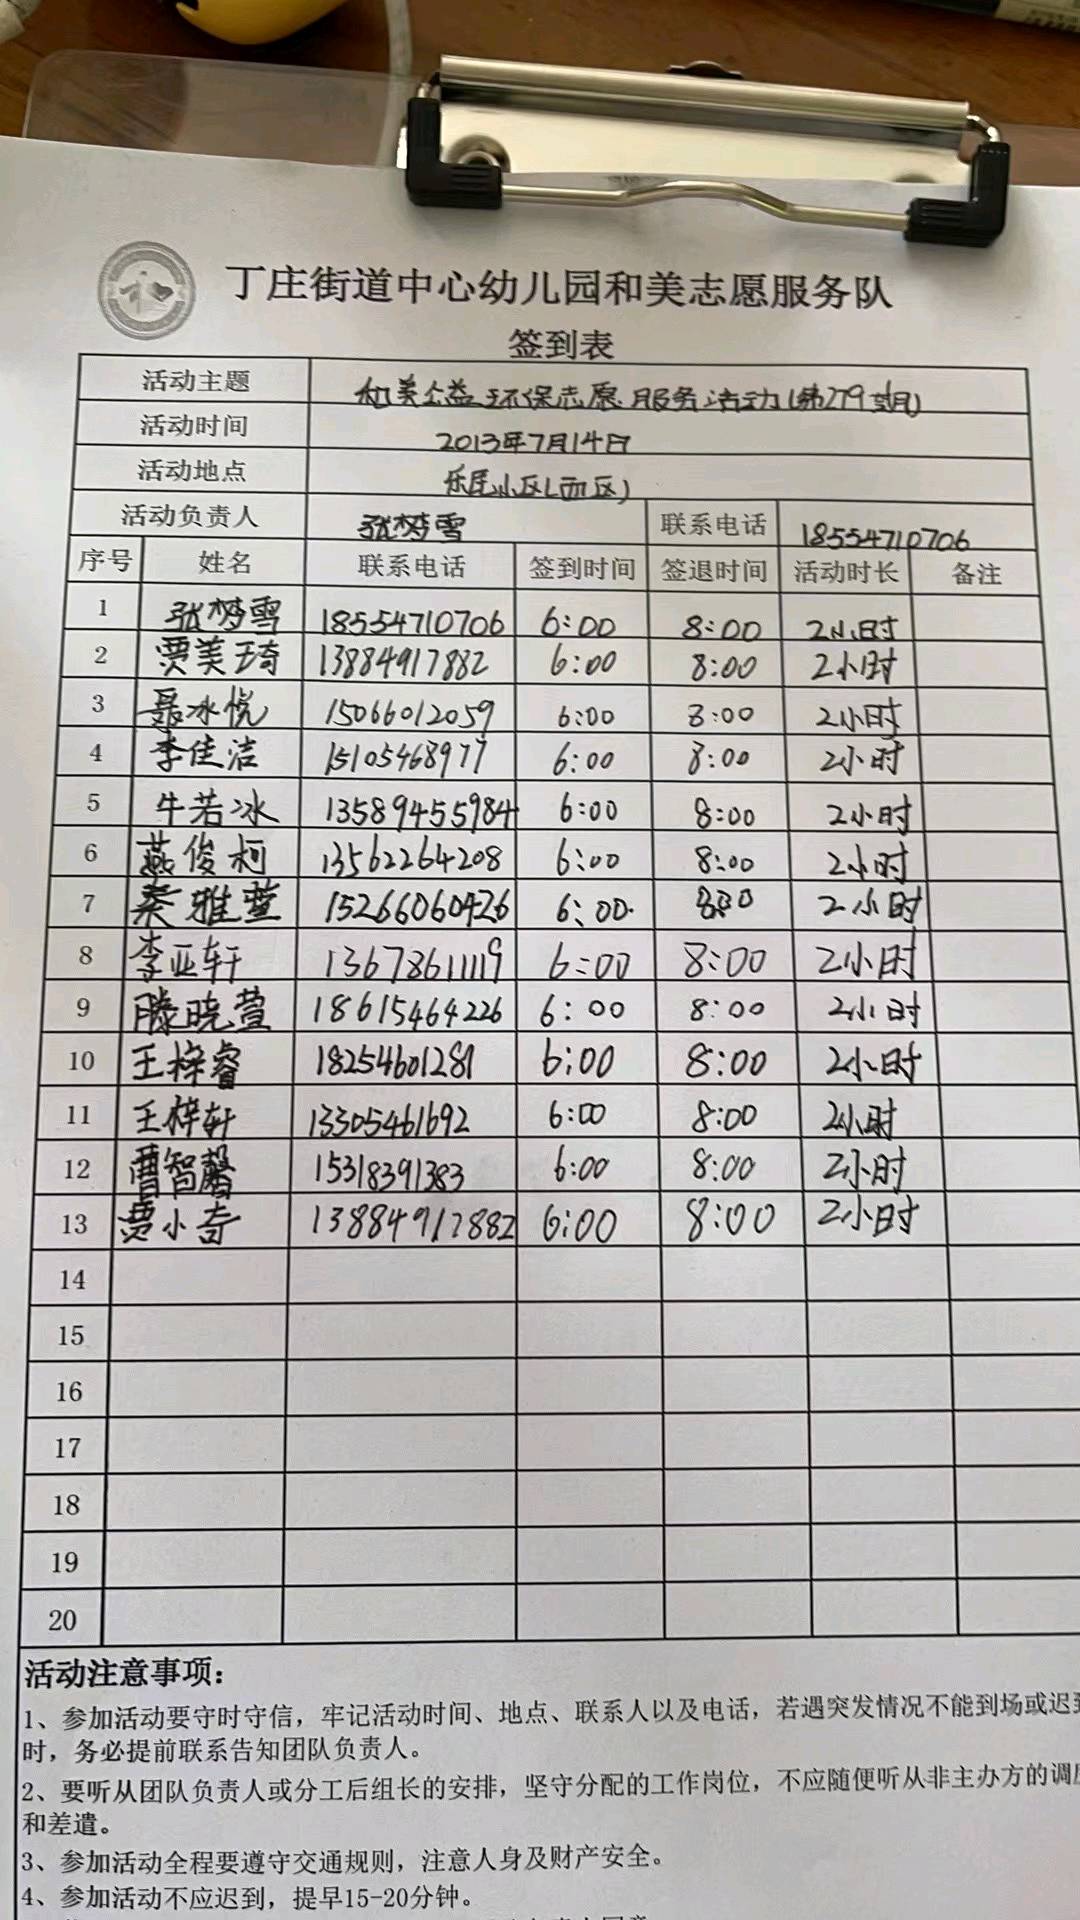 丁庄街道中心幼儿园和美志愿服务队
签到表
活动主题 和美公益环保志愿服务活动(第279期)
活动时间 2013年7月14日
活动地点 乐民小区(西区)
活动负责人 张梦雪 联系电话 18554710706
序号 姓名 联系电话 签到时间 签退时间 活动时长 备注
1 张梦雪 18554710706 6:00 8:00 2小时
2 贾美琦 13884917882 6:00 8:00 2小时
3 聂冰悦 15066012059 6:00 8:00 2小时
4 李佳洁 15105468977 6:00 8:00 2小时
5 牛若冰 13589455984 6:00 8:00 2小时
6 燕俊柯 13562264208 6:00 8:00 2小时
7 秦雅萱 15266060426 6:00 8:00 2小时
8 李亚轩 13678611119 6:00 8:00 2小时
9 滕晓萱 18615464226 6:00 8:00 2小时
10 王梓睿 18254601281 6:00 8:00 2小时
11 王梓轩 13305461692 6:00 8:00 2小时
12 曹智馨 15318391383 6:00 8:00 2小时
13 贾小奇 13884917882 6:00 8:00 2小时
14
15
16
17
18
19
20
活动注意事项：
1、参加活动要守时守信，牢记活动时间、地点、联系人以及电话，若遇突发情况不能到场或迟到
时，务必提前联系告知团队负责人。
2、要听从团队负责人或分工后组长的安排，坚守分配的工作岗位，不应随便听从非主办方的调
和差遣。
3、参加活动全程要遵守交通规则，注意人身及财产安全。
4、参加活动不应迟到，提早15-20分钟。